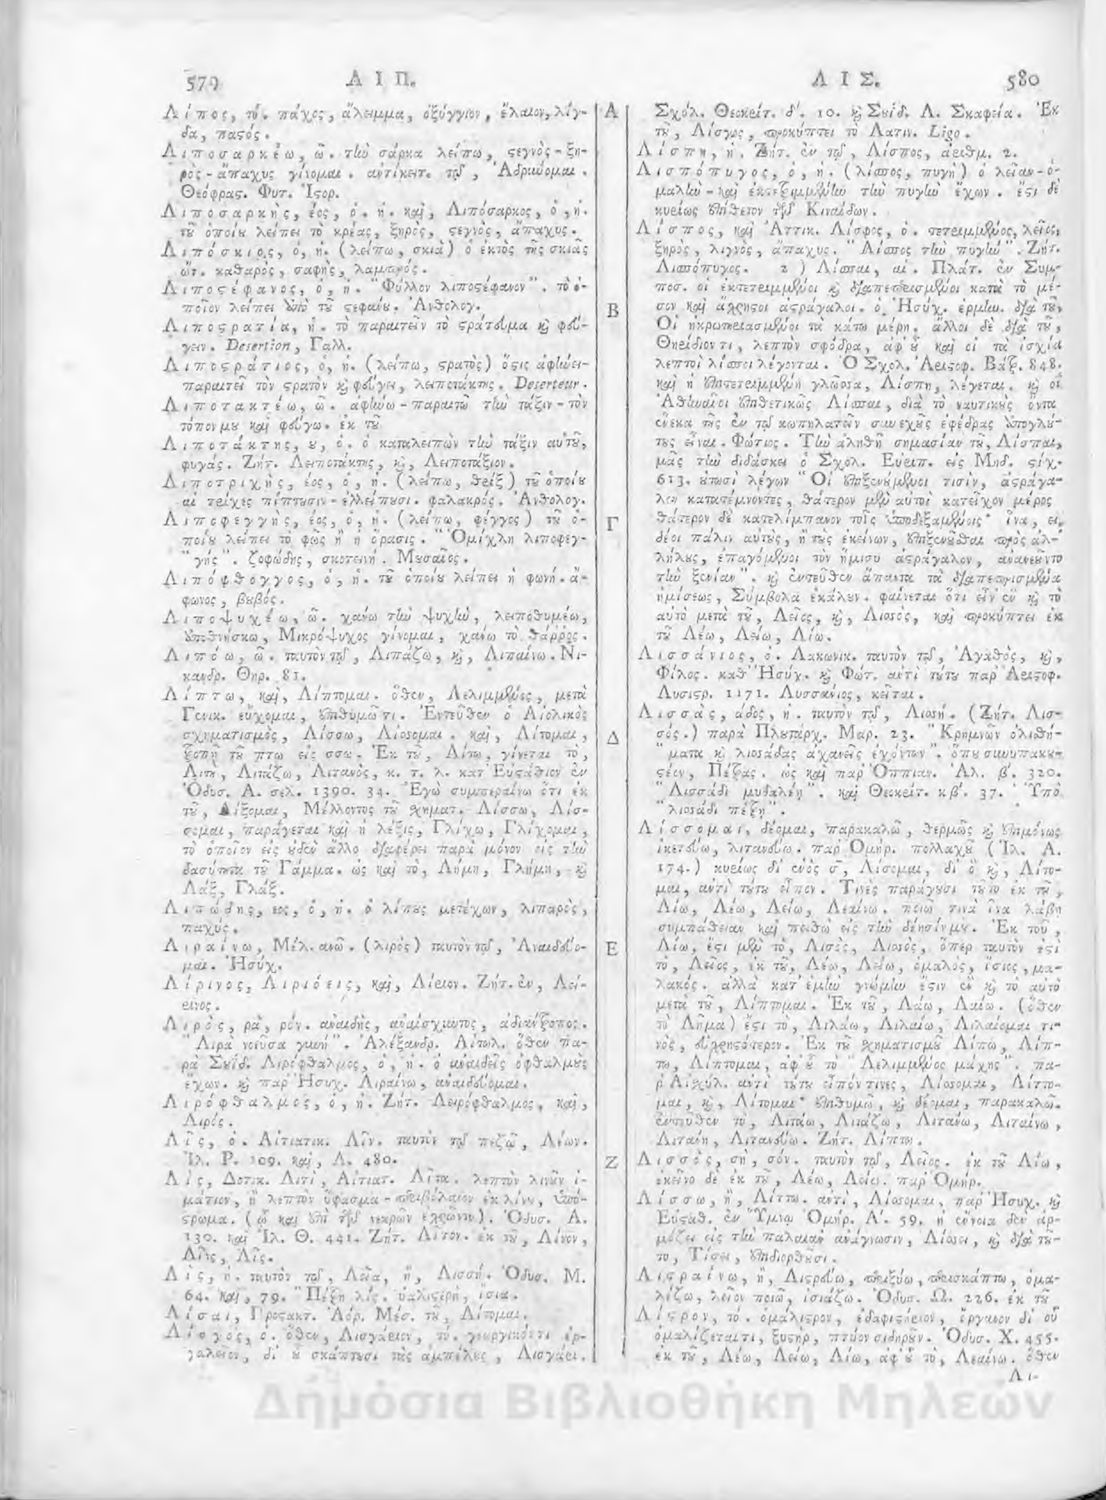 579 Λ Ι Π.
Λίπος, τό. πάχος, ἄλειμμα, ὀξύγγιον, ἔλαιον, λίγ-
δα, παςός.
Λιποσαρκέω, ῶ. τὴν σάρκα λείπω, ςεγνὸς-ξη-
ρὸς-ἄπαχυς γίνομαι. ἀντίκειτ. τῷ, Ἁδρύνομαι.
Θεόφρας. Φυτ. Ἱςορ.
Λιποσαρκὴς, έος, ὁ. ἡ. καὶ, Λιπόσαρκος, ὁ, ἡ.
τοῦ ὁποίου λείπει τὸ κρέας, ξηρὸς, ςεγνὸς, ἄπαχυς.
Λιπόσκιος, ὁ, ἡ. (λείπω, σκιὰ) ὁ ἐκτὸς τῆς σκιᾶς
ὤν. καθαρὸς, σαφὴς, λαμπρός.
Λιποςέφανος, ὁ, ἡ. "Φύλλον λιποςέφανον". τὸ ὁ-
ποῖον λείπει ἀπὸ τοῦ ςεφάνου. Ἀνθολογ.
Λιποςρατία, ἡ. τὸ παραιτεῖν τὸ ςράτευμα καὶ φεύ-
γειν. Desertion, Γαλλ.
Λιποςράτιος, ὁ, ἡ. (λείπω, ςρατὸς) ὅςις ἀφίνει-
παραιτεῖ τὸν ςρατὸν καὶ φεύγει, λειποτάκτης. Deserteur.
Λιποτακτέω, ῶ. ἀφίνω-παραιτῶ τὴν τάξιν-τὸν
τόπον μου καὶ φεύγω. ἐκ τοῦ
Λιποτάκτης, ου, ὁ. ὁ καταλειπὼν τὴν τάξιν αὐτοῦ,
φυγάς. Ζήτ. Λειποτάκτης, καὶ, Λειποτάξιον.
Λιποτριχὴς, έος, ὁ, ἡ. (λείπω, θρὶξ) τοῦ ὁποίου
αἱ τρίχες πίπτουσιν-ἐλλείπουσι. φαλακρός. Ἀνθολογ.
Λιποφεγγὴς, έος, ὁ, ἡ. (λείπω, φέγγος) τοῦ ὁ-
ποίου λείπει τὸ φῶς ἢ ἡ ὅρασις. "Ὁμίχλη λιποφεγ-
"γής". ζοφώδης, σκοτεινή. Μουσαῖος.
Λιπόφθογγος, ὁ, ἡ. τοῦ ὁποίου λείπει ἡ φωνή. ἄ-
φωνος, βουβός.
Λιποψυχέω, ῶ. χάνω τὴν ψυχὴν, λειποθυμέω,
ἀποθνήσκω, Μικρόψυχος γίνομαι, χάνω τὸ θάρρος.
Λιπόω, ῶ. ταυτὸν τῷ, Λιπάζω, καὶ, Λιπαίνω. Νι-
κανδρ. Θηρ. 81.
Λίπτω, καὶ, Λίπτομαι. ὅθεν, Λελιμμένος, μετὰ
Γενικ. εὔχομαι, ἐπιθυμῶ τι. Ἐντεῦθεν ὁ Αἰολικὸς
σχηματισμὸς, Λίσσω, Λίσσομαι. καὶ, Λίτομαι,
τροπῇ τοῦ πτω εἰς σσω. Ἐκ τοῦ, Λίτω, γίνεται τὸ,
Λιτὴ, Λιτάζω, Λιτανὸς, κ. τ. λ. κατ' Εὐςάθιον ἐν
Ὀδυσ. Α. σελ. 1390. 34. Ἐγὼ συμπεραίνω ὅτι ἐκ
τοῦ, Λίξομαι, Μέλλοντος τοῦ ῥηματ. Λίσσω, Λίσ-
σομαι, παράγεται καὶ ἡ λέξις, Γλίχω, Γλίχομαι,
τὸ ὁποῖον εἰς οὐδὲν ἄλλο διαφέρει παρὰ μόνον εἰς τὴν
δασύτητα τοῦ Γάμμα. ὡς καὶ τὸ, Λήμη, Γλήμη, καὶ
Λὰξ, Γλάξ.
Λιπώδης, εος, ὁ, ἡ. ὁ λίπους μετέχων, λιπαρὸς,
παχύς.
Λιραίνω, Μέλ. ανῶ. (λιρὸς) ταυτὸν τῷ, Ἀναιδεύο-
μαι. Ἡσύχ.
Λίρινος, Λιριόεις, καὶ, Λίριον. Ζήτ. ἐν, Λεί-
ρινος.
Λιρὸς, ρὰ, ρόν. ἀναιδὴς, ἀναίσχυντος, ἀδιάντροπος.
"Λιρὰ νοεῦσα γυνή". Ἀλέξανδρ. Αἰτωλ. ὅθεν πα-
ρὰ Σουίδ. Λιρόφθαλμος, ὁ, ἡ. ὁ ἀναιδεῖς ὀφθαλμοὺς
ἔχων. καὶ παρ' Ἡσυχ. Λιραίνω, ἀναιδεύομαι.
Λιρόφθαλμος, ὁ, ἡ. Ζήτ. Λειρόφθαλμος, καὶ,
Λιρός.
Λὶς, ὁ. Αἰτιατικ. Λῖν. ταυτὸν τῷ πεζῷ, Λέων.
Ἰλ. Ρ. 109. καὶ, Λ. 480.
Λὶς, Δοτικ. Λιτὶ, Αἰτιατ. Λῖτα. λεπτὸν λινὸν ἱ-
μάτιον, ἢ λεπτὸν ὕφασμα-περιβόλαιον ἐκ λίνου, ὑπό-
ςρωμα. (ᾧ καὶ ἐπὶ τῶν νεκρῶν ἐχρῶντο). Ὀδυσ. Α.
130. καὶ Ἰλ. Θ. 441. Ζήτ. Λῖτον. ἐκ τοῦ, Λίνον,
Λῖνς, Λῖς.
Λὶς, ἡ. ταυτὸν τῷ, Λεῖα, ἢ, Λισσή. Ὀδυσ. Μ.
64. καὶ, 79. "Πέτρη λίς. ὁμαλιςερὴ, ἰσία.
Λίσαι, Προςακτ. Ἀόρ. Μέσ. τοῦ, Λίτομαι.
Λίσγος, ὁ. ὅθεν, Λισγάριον, τό. γεωργικόν τι ἐρ-
γαλεῖον, δι' οὗ σκάπτουσι τὰς ἀμπέλους, Λισγάρι.
Α
Β
Γ
Δ
Ε
Ζ
Λ Ι Σ. 580
Σχόλ. Θεοκρίτ. δ'. 10. καὶ Σουίδ. Λ. Σκαφεία. Ἐκ
τοῦ, Λίσγος, προκύπτει τὸ Λατιν. Ligo.
Λίσπη, ἡ. Ζήτ. ἐν τῷ, Λίσπος, ἀριθμ. 2.
Λισπόπυγος, ὁ, ἡ. (λίσπος, πυγὴ) ὁ λείαν-ὁ-
μαλὴν-καὶ ἐκτετριμμένην τὴν πυγὴν ἔχων. ἔςι δὲ
κυρίως ἐπίθετον τῶν Κιναίδων.
Λίσπος, καὶ Ἀττικ. Λίσφος, ὁ. τετριμμένος, λεῖος,
ξηρὸς, λιγνὸς, ἄπαχυς. "Λίσπος τὴν πυγήν". Ζήτ.
Λισπόπυγος. 2) Λίσπαι, αἱ. Πλάτ. ἐν Συμ-
ποσ. οἱ ἐκτετριμμένοι καὶ διαπεπρισμένοι κατὰ τὸ μέ-
σον καὶ ἄχρηςοι ἀςράγαλοι. ὁ Ἡσύχ. ἑρμην. διὰ τοῦ,
Οἱ ἠκρωτηριασμένοι τὰ κάτω μέρη. ἄλλοι δὲ διὰ τοῦ,
Θηρίδιόν τι, λεπτὸν σφόδρα, ἀφ' οὗ καὶ οἱ τὰ ἰσχία
λεπτοὶ λίσποι λέγονται. Ὁ Σχολ. Ἀριςοφ. Βάτρ. 848.
καὶ ἡ ἐπιτετριμμένη γλῶσσα, Λίσπη, λέγεται. καὶ οἱ
Ἀθηναῖοι ἐπιθετικῶς Λίσπαι, διὰ τὸ ναυτικοὺς ὄντας
ἕνεκα τῆς ἐν τῷ κωπηλατεῖν συνεχοῦς ἐφέδρας ἀπογλού-
τους εἶναι. Φώτιος. Τὴν ἀληθῆ σημασίαν τοῦ, Λίσπαι,
μᾶς τὴν διδάσκει ὁ Σχολ. Εὐριπ. εἰς Μηδ. ςίχ.
613. οὑτωσὶ λέγων "Οἱ ἐπιξενούμενοι τισὶν, ἀςράγα-
λον κατατέμνοντες, θάτερον μὲν αὐτοὶ κατεῖχον μέρος
θάτερον δὲ κατελίμπανον τοῖς ὑποδεξαμένοις· ἵνα, εἰ
δέοι πάλιν αὐτοὺς, ἢ τοὺς ἐκείνων, ἐπιξενοῦσθαι πρὸς ἀλ-
λήλους, ἐπαγόμενοι τὸν ἥμισυ ἀςράγαλον, ἀνανεοῖντο
τὴν ξενίαν". καὶ ἐντεῦθεν ἅπαντα τὰ διαπεπρισμένα
ἡμίσεως, Σύμβολα ἐκάλουν. φαίνεται ὅτι εἶν' ἓν καὶ τὸ
αὐτὸ μετὰ τοῦ, Λεῖος, καὶ, Λισσὸς, καὶ προκύπτει ἐκ
τοῦ Λέω, Λείω, Λίω.
Λισσάνιος, ὁ. Λακωνικ. ταυτὸν τῷ, Ἀγαθὸς, καὶ,
Φίλος. καθ' Ἡσύχ. καὶ Φώτ. ἀντὶ τούτου παρ' Ἀριςοφ.
Λυσιςρ. 1171. Λυσσάνιος, κεῖται.
Λισσὰς, άδος, ἡ. ταυτὸν τῷ, Λισσή. (Ζήτ. Λισ-
σός.) παρὰ Πλουτάρχ. Μαρ. 23. "Κρημνῶν ὀλισθή-
"ματα καὶ λισσάδας ἀχανεῖς ἐχόντων". ὅπου συνυπακου-
ςέον, Πέτρας. ὡς καὶ παρ' Ὀππιαν. Ἁλ. β'. 320.
"Λισσάδι μυδαλέῃ". καὶ Θεοκρίτ. κβ'. 37. "Ὑπὸ
"λισσάδι πέτρῃ".
Λίσσομαι, δέομαι, παρακαλῶ, θερμῶς καὶ ἐπιμόνως
ἱκετεύω, λιτανεύω. παρ' Ὁμήρ. πολλαχοῦ (Ἰλ. Α.
174.) κυρίως δι' ἑνὸς σ, Λίσομαι, δι' ὃ καὶ, Λίτο-
μαι, ἀντὶ τούτου εἶπον. Τινὲς παράγουσι τοῦτο ἐκ τοῦ,
Λίω, Λέω, Λείω, Λεαίνω. ποιῶ τινὰ ἵνα λάβῃ
συμπάθειαν καὶ πεισθῇ εἰς τὴν δέησίν μου. Ἐκ τοῦ,
Λίω, ἔςι μὲν τὸ, Λισὸς, Λισσὸς, ὅπερ ταυτόν ἐςι
τῷ, Λεῖος, ἐκ τοῦ, Λέω, Λείω, ὁμαλὸς, ἴσιος, μα-
λακός. ἀλλὰ κατ' ἐμὴν γνώμην ἔςιν ἓν καὶ τὸ αὐτὸ
μετὰ τοῦ, Λίπτομαι. Ἐκ τοῦ, Λάω, Λαίω. (ὅθεν
τὸ Λῆμα) ἔςι τὸ, Λιλάω, Λιλαίω, Λιλαίομαί τι-
νος, εὐχρηςότερον. Ἐκ τοῦ ῥηματισμοῦ Λίπω, Λίπ-
τω, Λίπτομαι, ἀφ' οὗ τὸ "Λελιμμένος μάχης". πα-
ρ' Αἰσχύλ. ἀντὶ τούτου εἶπόν τινες, Λίσσομαι, Λίττο-
μαι, καὶ, Λίτομαι· ἐπιθυμῶ, καὶ δέομαι, παρακαλῶ.
ἐντεῦθεν τὸ, Λιτάω, Λιτάζω, Λιτάνω, Λιταίνω,
Λιτανὴ, Λιτανεύω. Ζήτ. Λίπτω.
Λισσὸς, σὴ, σόν. ταυτὸν τῷ, Λεῖος. ἐκ τοῦ Λίω,
ἐκεῖνο δὲ ἐκ τοῦ, Λέω, Λείω. παρ' Ὁμήρ.
Λίσσω, ἢ, Λίττω. ἀντὶ, Λίσσομαι, παρ' Ἡσυχ. καὶ
Εὐςαθ. ἐν Ὕμνῳ Ὁμήρ. Α'. 59. ἡ ἔννοια δὲν ἁρ-
μόζει εἰς τὴν παλαιὰν ἀνάγνωσιν, Λίσσει, καὶ διὰ τοῦ-
το, Τίσει, ἐπιδιορθοῦσι.
Λιςραίνω, ἢ, Λιςρεύω, περιξύω, περισκάπτω, ὁμα-
λίζω, λεῖον ποιῶ, ἰσιάζω. Ὀδυσ. Ω. 226. ἐκ τοῦ
Λίςρον, τό. ὁμάλιςρον, ἐδαφιςήριον, ὄργανον δι' οὗ
ὁμαλίζεταί τι, ξυςὴρ, πτύον σιδηροῦν. Ὀδυσ. Χ. 455.
ἐκ τοῦ, Λέω, Λείω, Λίω, ἀφ' οὗ τὸ, Λεαίνω. ὅθεν
Λι-
Δημόσια Βιβλιοθήκη Μηλεών